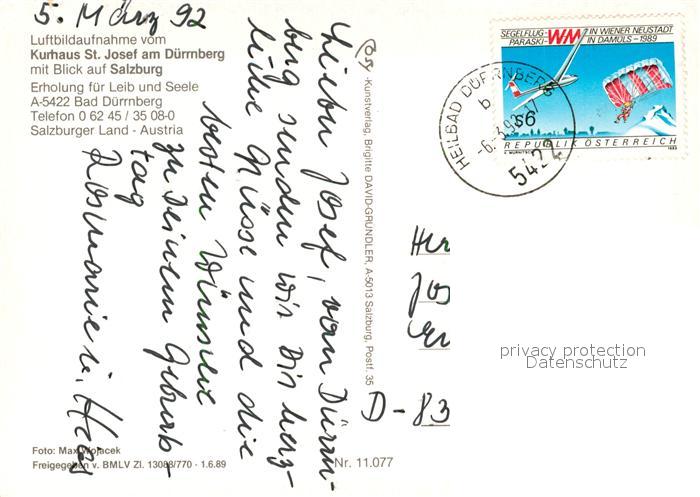 5. März 92
Luftbildaufnahme vom
Kurhaus St. Josef am Dürrnberg
mit Blick auf Salzburg
Erholung für Leib und Seele
A-5422 Bad Dürrnberg
Telefon 0 62 45 / 35 08-0
Salzburger Land - Austria
Lieber Josef, vom Dürrn-
berg senden wir Dir herz-
liche Grüsse und die
besten Wünsche
zu Deinem Geburts-
tag
Rosmarie u. Hans
Foto: Max Wojacek
Freigegeben v. BMLV Zl. 13088/770 - 1.6.89
-Kunstverlag, Brigitte DAVID-GRUNDLER, A-5013 Salzburg, Postf. 35
Nr. 11.077
SEGELFLUG- WM IN WIENER NEUSTADT
PARASKI- IN DAMÜLS - 1989
S6
REPUBLIK ÖSTERREICH
HEILBAD DÜRRNBERG
b
5422
Her
Jos
D-83
privacy protection
Datenschutz